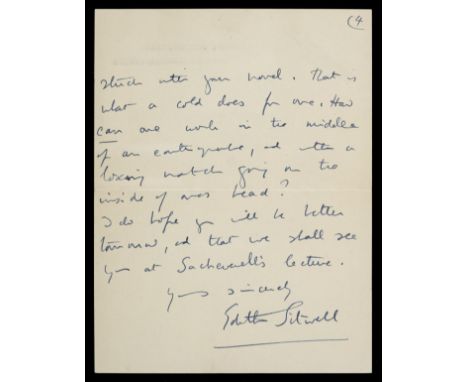 (4
stuck with your novel. That is
what a cold does for one. How
can one work in the middle
of an earthquake, and with a
boxing match going on the
inside of one's head?
I do hope you will be better
tomorrow, and that we shall see
you at Sacheverell's lecture.
Yours sincerely
Edith Sitwell